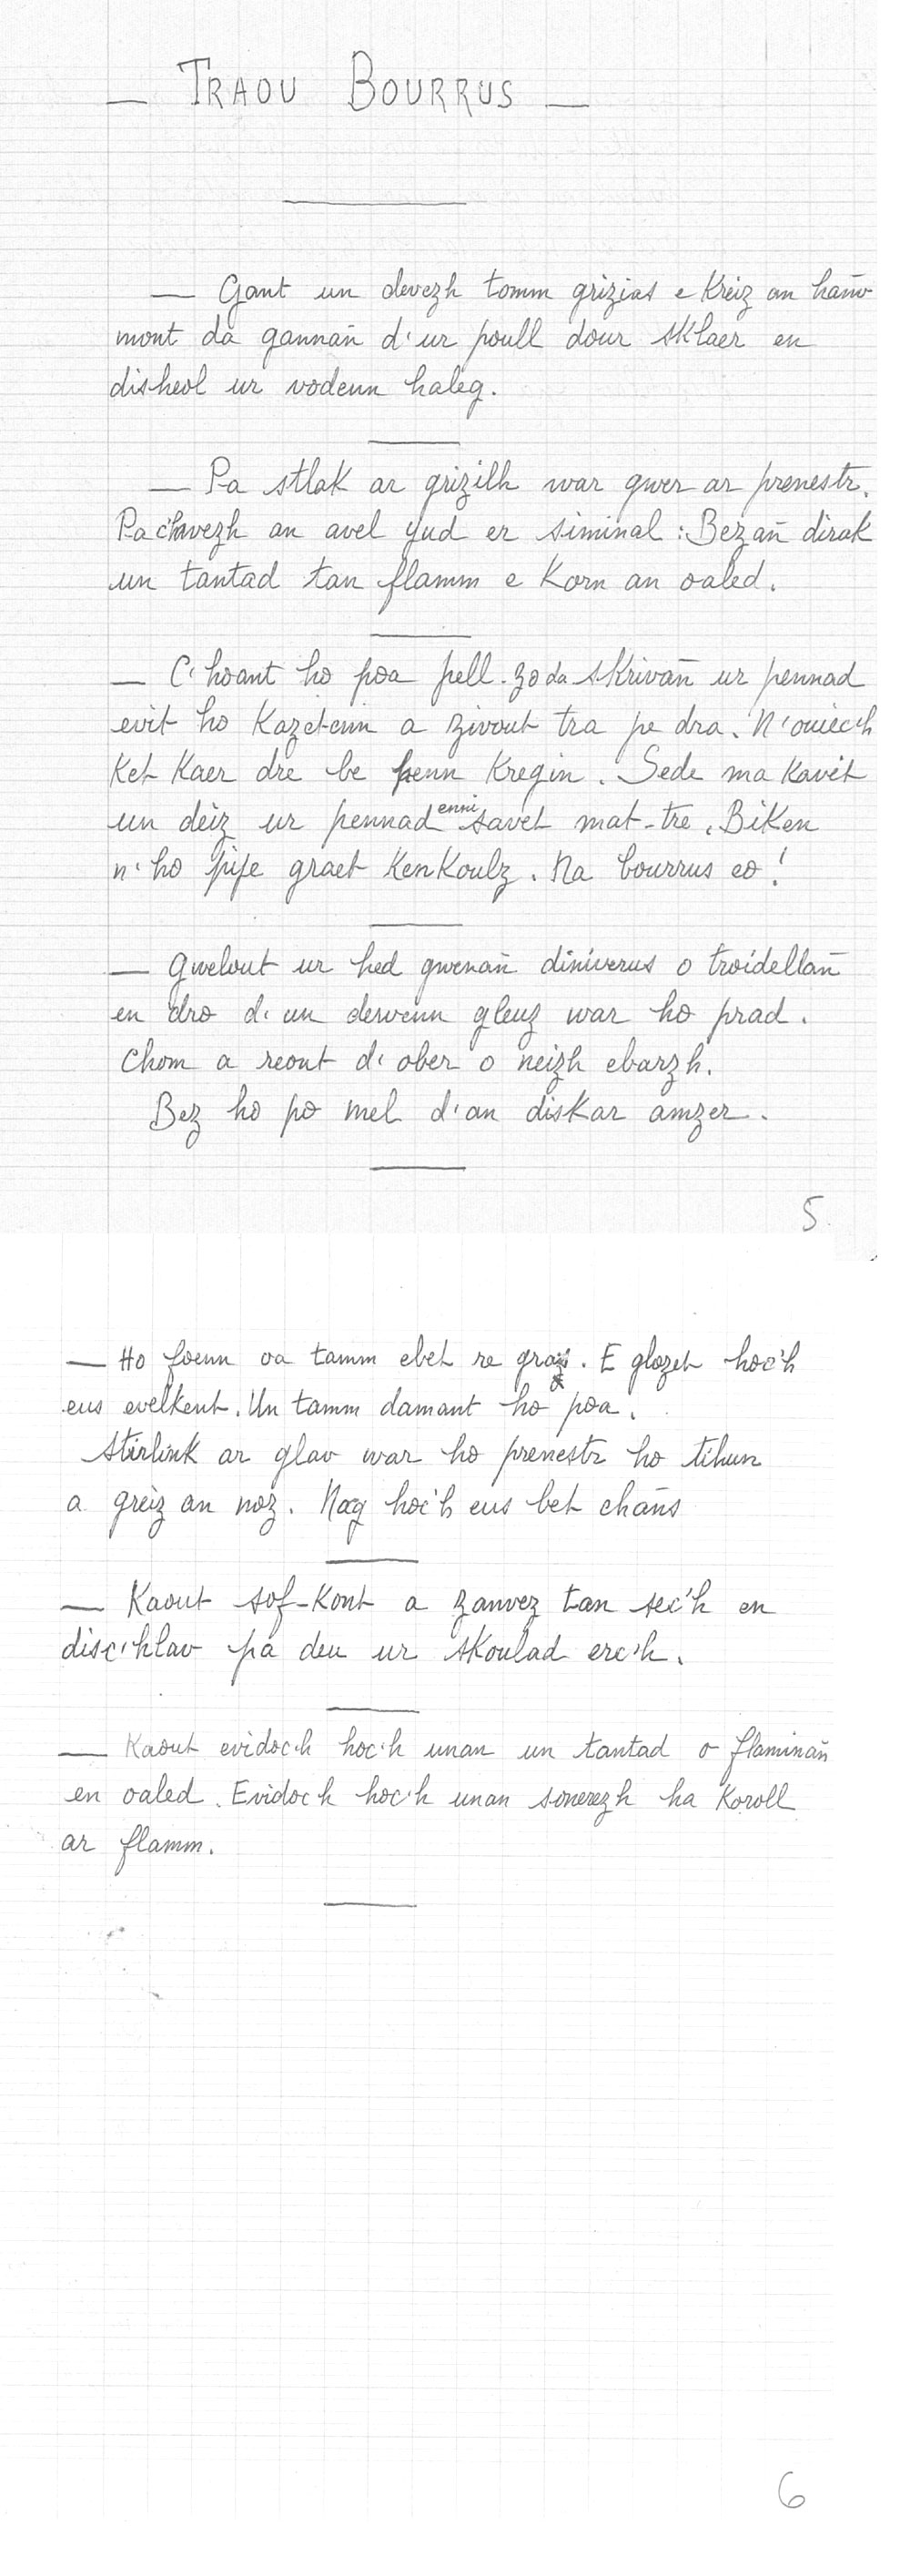 — TRAOU BOURRUS —
— Gant un devezh tomm grizias e Kreiz an hañv
mont da gannañ d'ur poull dour sklaer en
disheol ur vodenn haleg.
— Pa stlak ar grizilh war gwer ar prenestr.
Pa c'hwezh an avel yud er siminal : Bezañ dirak
un tantad tan flamm e Korn an oaled.
— C'hoant ho poa pell-zo da skrivañ ur pennad
evit ho Kazetenn a zivout tra pe dra. N'ouiec'h
Ket Kaer dre be penn Kregin. Sede ma Kavit
un deiz ur pennad enni savet mat-tre. Biken
n'ho pije graet KenKoulz. Na bourrus eo !
— Gwelout ur hed gwenañ diniverus o troidellañ
en dro d'un dervenn gleuz war ho prad.
Chom a reont d'ober o neizh ebarzh.
Bez ho po mel d'an diskar amzer.
5
— Ho foenn oa tamm ebet re . E glozet hoc'h
eus evelkent. Un tamm damant ho poa.
Stirlink ar glav war ho prenestr ho tihun
a greiz an noz. Nag hoc'h eus bet chañs
— Kaout sof-Kont a zanvez tan sec'h en
disc'hlav pa deu ur skoulad erc'h.
— Kaout evidoc'h hoc'h unan un tantad o flaminañ
en oaled. Evidoc'h hoc'h unan sonerezh ha Koroll
ar flamm.
6